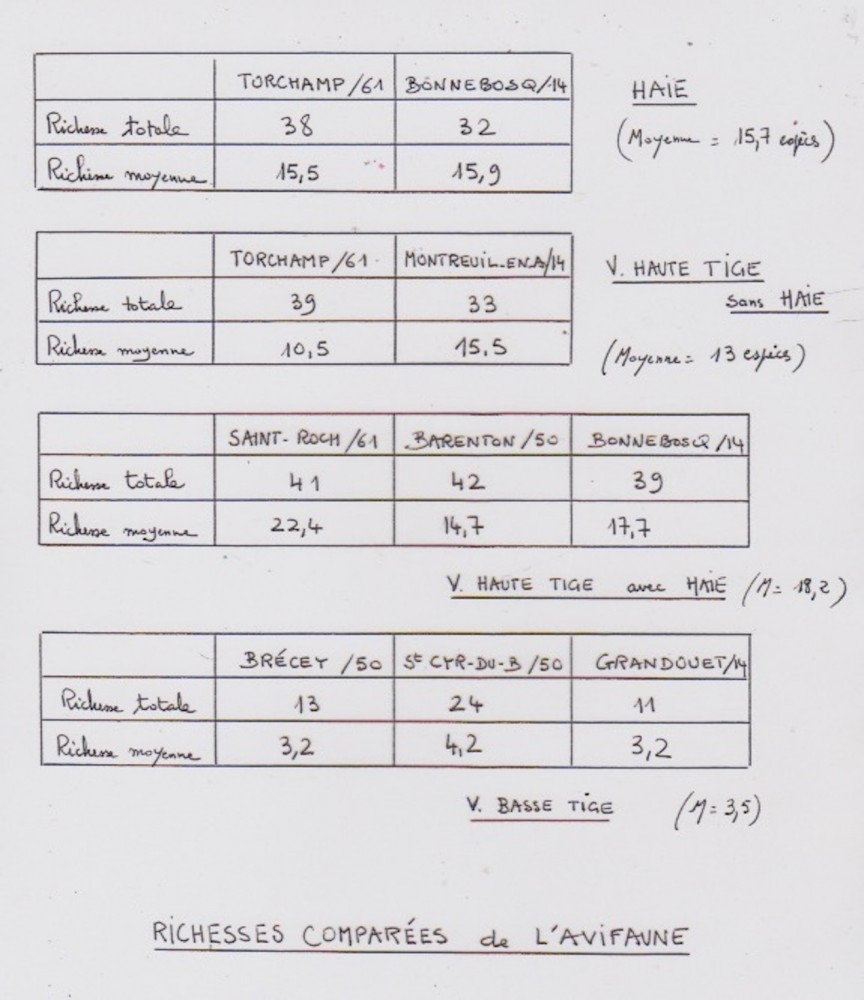 TORCHAMP/61 BONNEBOSQ/14
Richesse totale 38 32
Richesse moyenne 15,5 15,9
HAIE
(Moyenne = 15,7 espèces)
TORCHAMP/61 MONTREUIL-EN-A/14
Richesse totale 39 33
Richesse moyenne 10,5 15,5
V. HAUTE TIGE
sans HAIE
(Moyenne = 13 espèces)
SAINT-ROCH/61 BARENTON/50 BONNEBOSQ/14
Richesse totale 41 42 39
Richesse moyenne 22,4 14,7 17,7
V. HAUTE TIGE avec HAIE (M = 18,2)
BRÉCEY/50 St CYR-DU-B/50 GRANDOUET/14
Richesse totale 13 24 11
Richesse moyenne 3,2 4,2 3,2
V. BASSE TIGE (M = 3,5)
RICHESSES COMPARÉES de L'AVIFAUNE